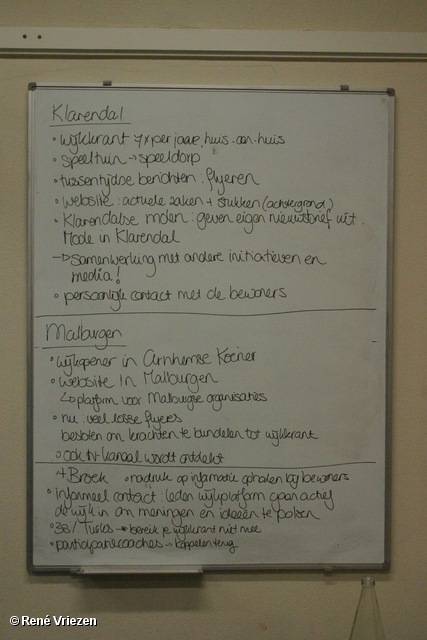 Klarendal
◦ wijkkrant 7x per jaar, huis-aan-huis
◦ speeltuin → speeldorp
◦ tussentijdse berichten: flyeren
◦ website: actuele zaken + stukken (achtergrond)
◦ Klarendalse molen: geven eigen nieuwsbrief uit.
Mode in Klarendal
→ samenwerking met andere initiatieven en
media!
◦ persoonlijk contact met de bewoners
Malburgen
◦ wijkopener in Arnhemse Koerier
◦ website In Malburgen
↳ platform voor Malburgse organisaties
◦ nu: veel losse flyers
besloten om krachten te bundelen tot wijkkrant
◦ ook tv-kanaal wordt ontdekt
't Broek ◦ nadruk op informatie ophalen bij bewoners
◦ informeel contact: leden wijkplatform gaan actief
de wijk in om meningen en ideeën te polsen
◦ 38 / Turks → bereik je wijkkrant niet mee
◦ participatiecoaches → koppelen terug
© René Vriezen